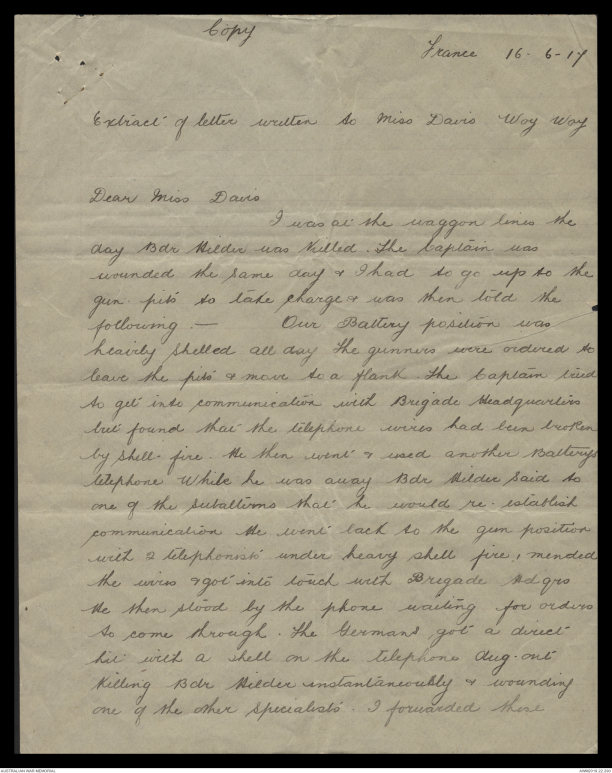 Copy
France 16-6-17
Extract of letter written to Miss Davis Woy Woy
Dear Miss Davis
I was at the waggon lines the
day Bdr Hilder was killed. The Captain was
wounded the same day & I had to go up to the
gun pits to take charge & was then told the
following. — Our Battery position was
heavily shelled all day The gunners were ordered to
leave the pits & move to a flank. The Captain tried
to get into communication with Brigade Headquarters
but found that the telephone wires had been broken
by shell-fire. He then went & used another Batterys
telephone While he was away Bdr Hilder said to
one of the subalterns that he would re-establish
communication He went back to the gun position
with 2 telephonists under heavy shell fire, mended
the wires & got into touch with Brigade Hdqrs
He then stood by the phone waiting for orders
to come through. The Germans got a direct
hit with a shell on the telephone dug-out
killing Bdr Hilder instantaneously & wounding
one of the other specialists. I forwarded these
AUSTRALIAN WAR MEMORIAL